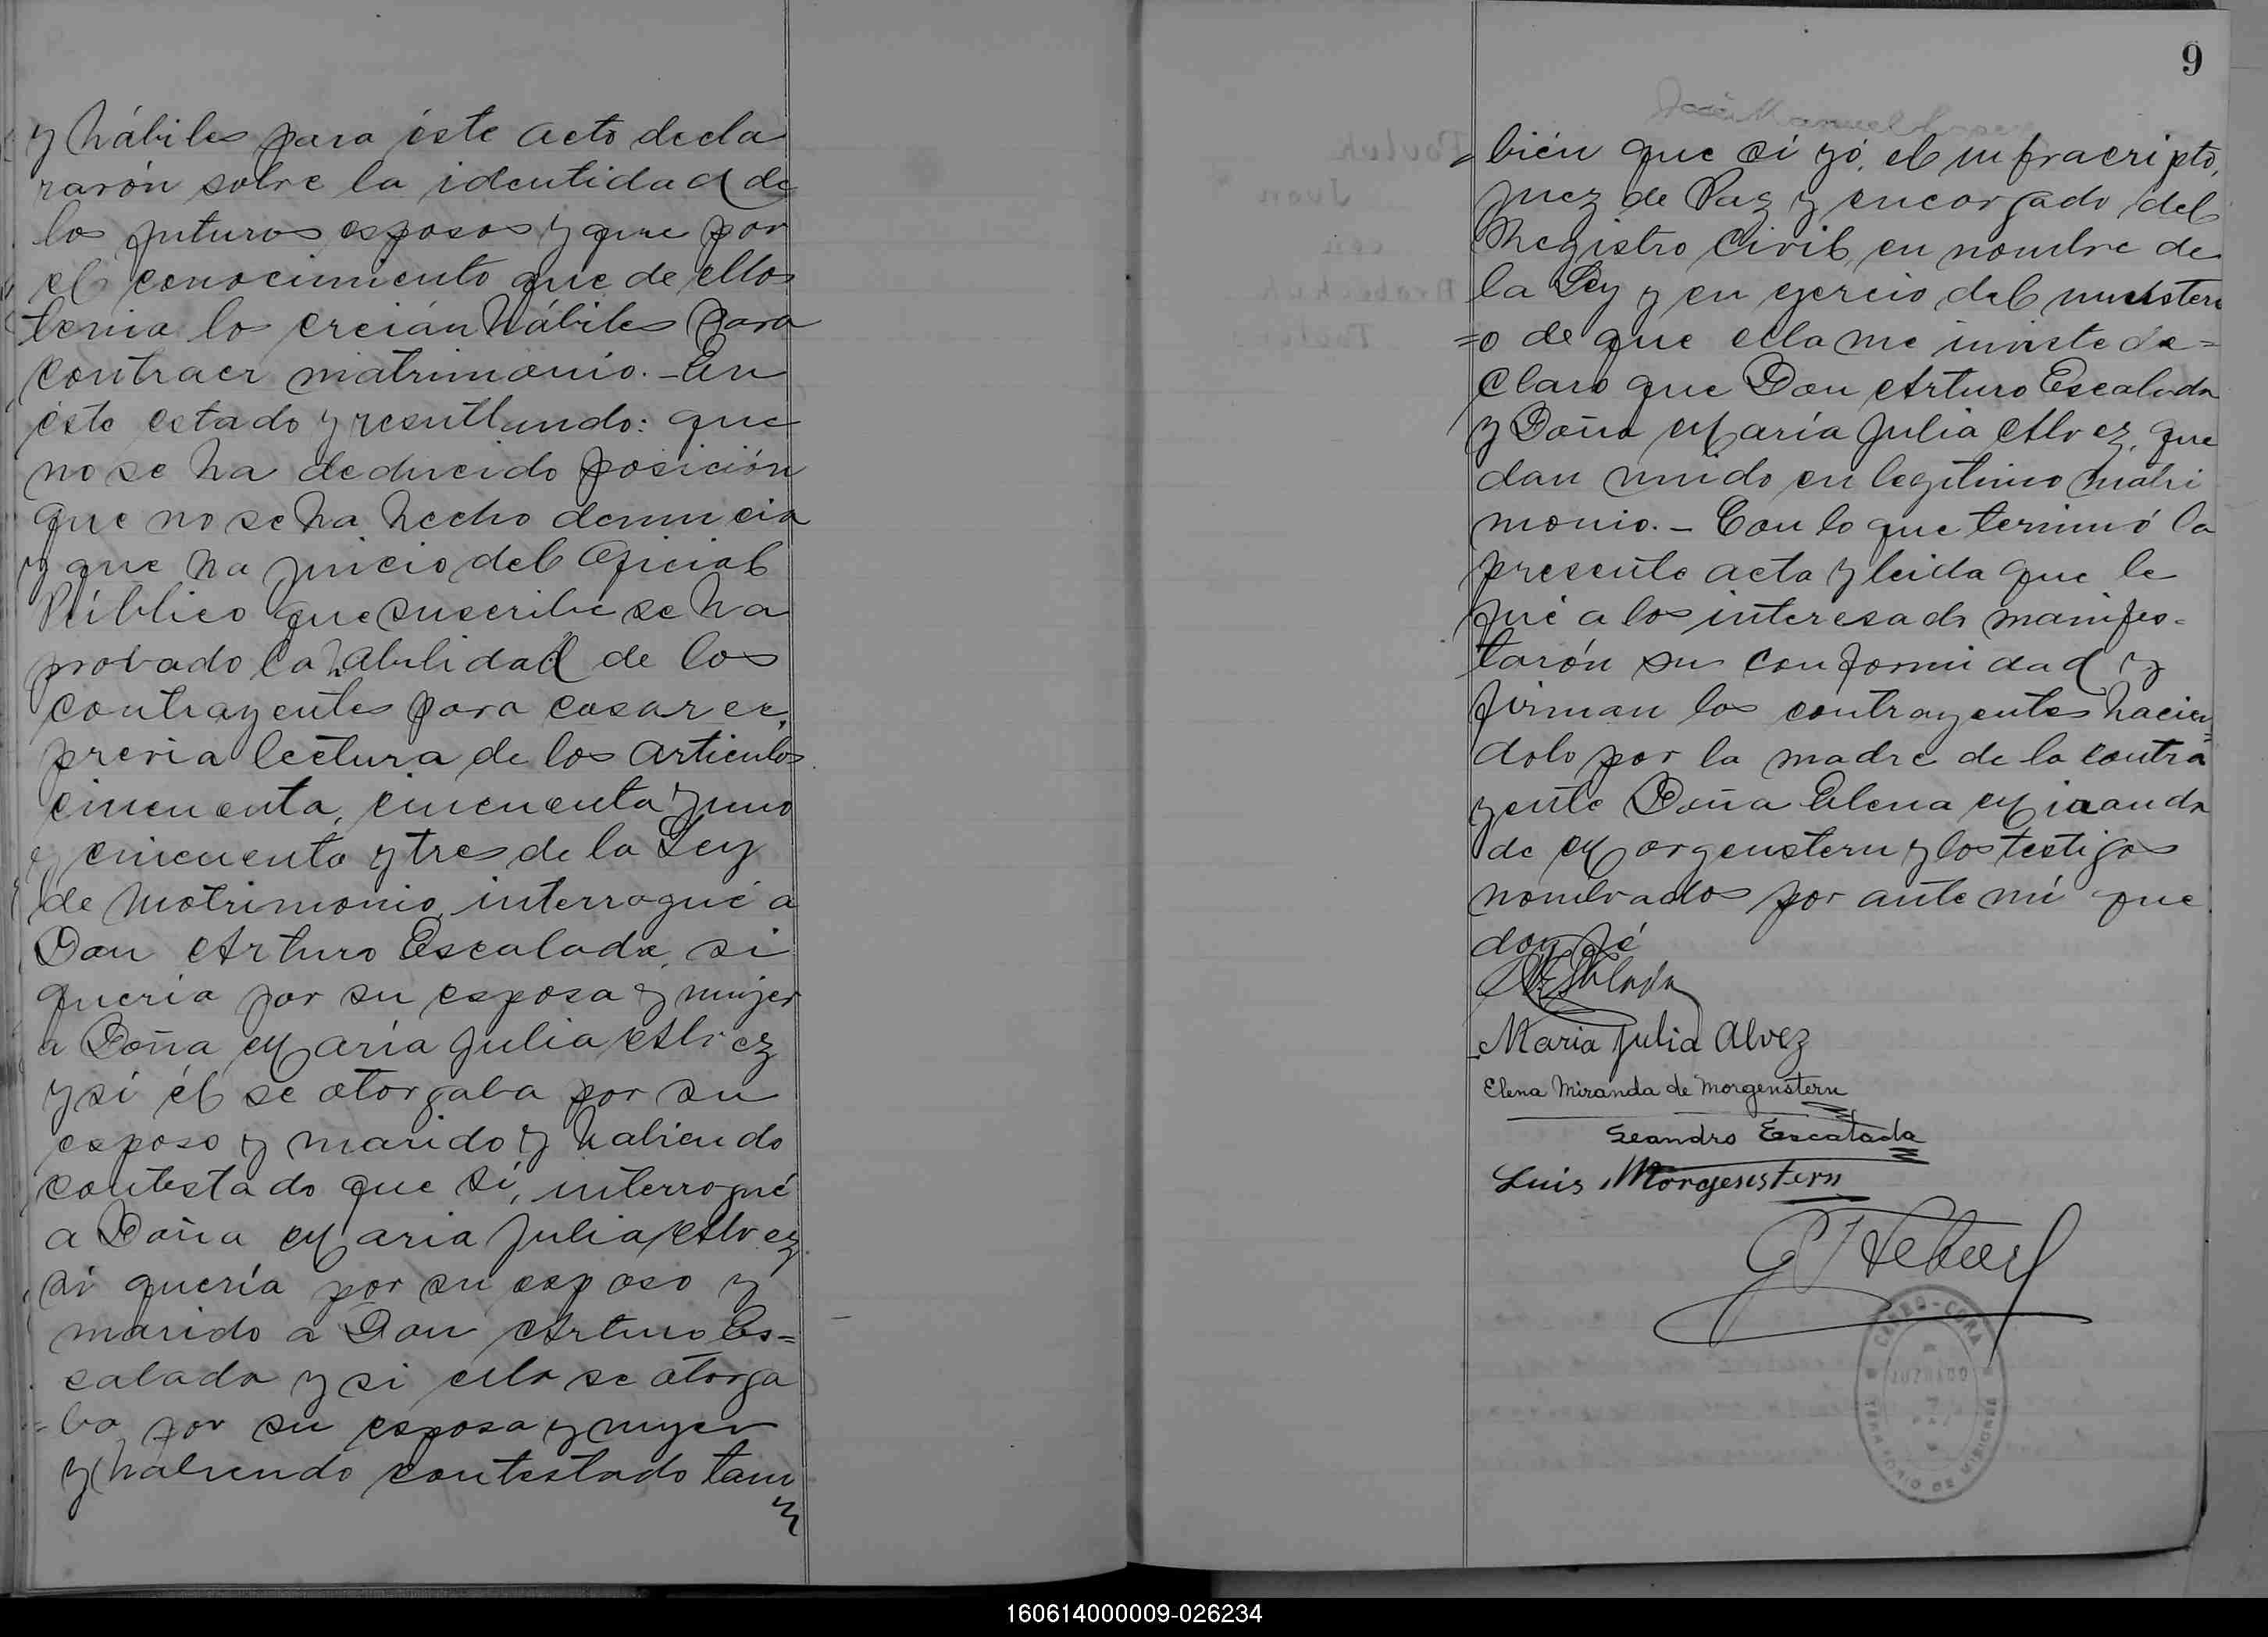 y hábiles para éste acto decla
rarón sobre la identidad de
los futuros esposos y que por
el conocimiento que de ellos
tenia lo creián hábiles para
contraer matrimonio. - En
éste estado y resultando: que
no se ha deducido posición
que no se ha hecho denuncia
y que ha juicio del Oficial
Público que suscribe se ha
probado la habilidad de los
contrayentes para casarce,
previa lectura de los articulos
cincuenta, cincuenta y uno
y cincuenta y tres de la Ley
de Matrimonio, interrogué a
Don Arturo Escalada, si
queria por su esposa y mujer
a Doña María Julia Alvez
y si él se otorgaba por su
esposo y marido y habiendo
contestado que sí, interrogué
a Doña Maria Julia Alvez
si quería por su esposo y
marido a Don Arturo Es=
calada y si ella se otorga
=ba por su esposa y mujer
y habiendo contestado tam
9
=bién que sí yó, el infracripto,
Juez de Paz y encargado del
Registro Civil, en nombre de
la Ley y en ejercio del ministeri
=o de que ella me inviste de=
claro que Don Arturo Escalada
y Doña María Julia Alvez, que
dan unido en legítimo matri
monio. - Con lo que terminó la
presente acta y leida que le
fué a los interesado manifes=
tarón su conformidad y
firman los contrayentes hacien=
dolo por la madre de la contra
yente Doña Elena Miranda
de Morgenstern y los testigos
nombrados por ante mí que
doy fé
Maria Julia Alvez
Elena Miranda de Morgenstern
Leandro Escalada
Luis Morgenstern
CERRO-CORA
JUZGADO
TERRITORIO DE MISIONES
160614000009-026234